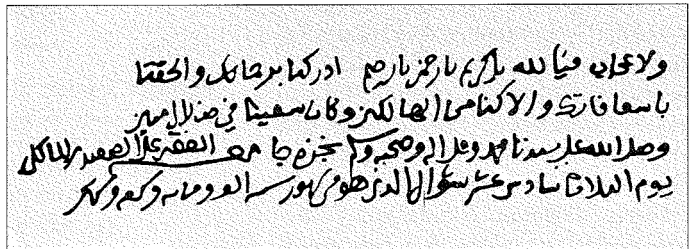 ولا عذاب فيا لله يا كريم يا رحمن يا رحيم ادركنا بر والحقنا
باسعا وان والا كنا من الهالكين وكان سعينا في ضلال مبين
وصلى الله على سيدنا محمد وعلى اله وصحبه وسلم نجزه جامعه الفقير علي الصعيدي المالكي
يوم الثلاثا سادس عشر شوال الذي هو من شهور سنه الف ومائه و